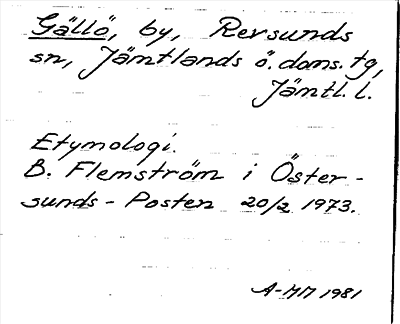 Gällö, by, Revsunds
sn, Jämtlands ö. doms. tg,
Jämtl. l.
Etymologi.
B. Flemström i Öster-
sunds-Posten 20/2 1973.
A-MM 1981